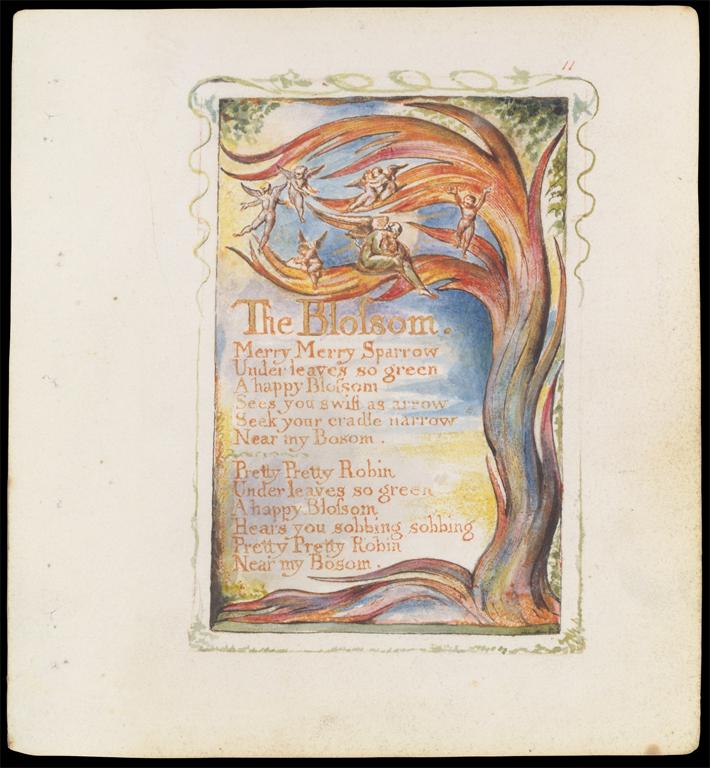 11
The Bloſsom.
Merry Merry Sparrow
Under leaves so green
A happy Bloſsom
Sees you swift as arrow
Seek your cradle narrow
Near my Bosom.
Pretty Pretty Robin
Under leaves so green
A happy Bloſsom
Hears you sobbing sobbing
Pretty Pretty Robin
Near my Bosom.